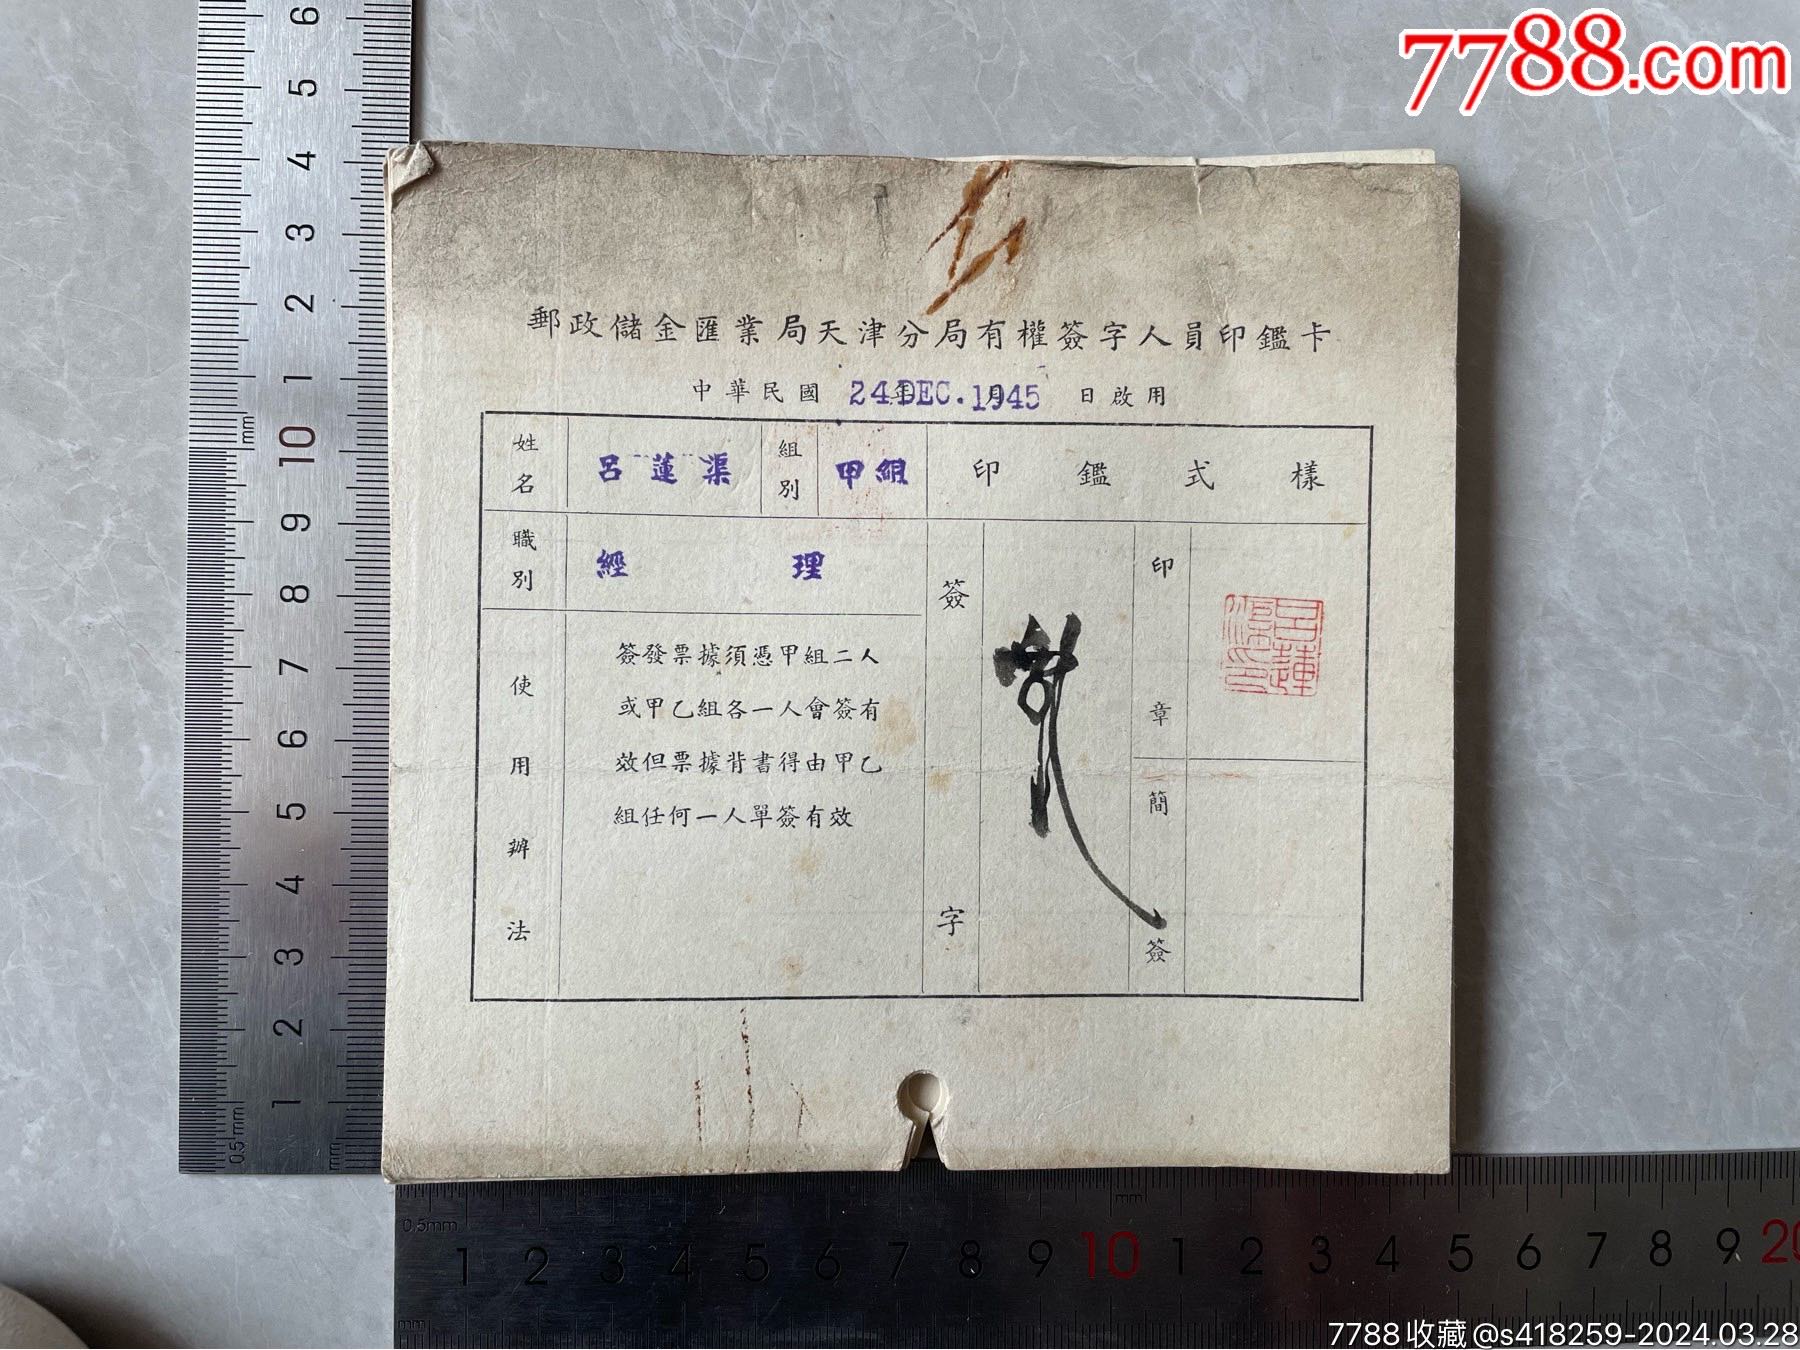 7788.com
郵政儲金匯業局天津分局有權簽字人員印鑑卡
中華民國 年 月 日啟用
24 DEC. 1945
姓名 呂蓮渠 組別 甲組 印鑑式樣
職別 經理
簽字
印章
呂蓮渠印
簡簽
使用辦法
簽發票據須憑甲組二人
或甲乙組各一人會簽有
效但票據背書得由甲乙
組任何一人單簽有效
6 5 4 3 2 1 10 9 8 7 6 5 4 3 2 1
mm
0.5mm
mm
0.5mm
mm
1 2 3 4 5 6 7 8 9 10 1 2 3 4 5 6 7 8 9 20
mm
7788收藏@s418259-2024.03.28